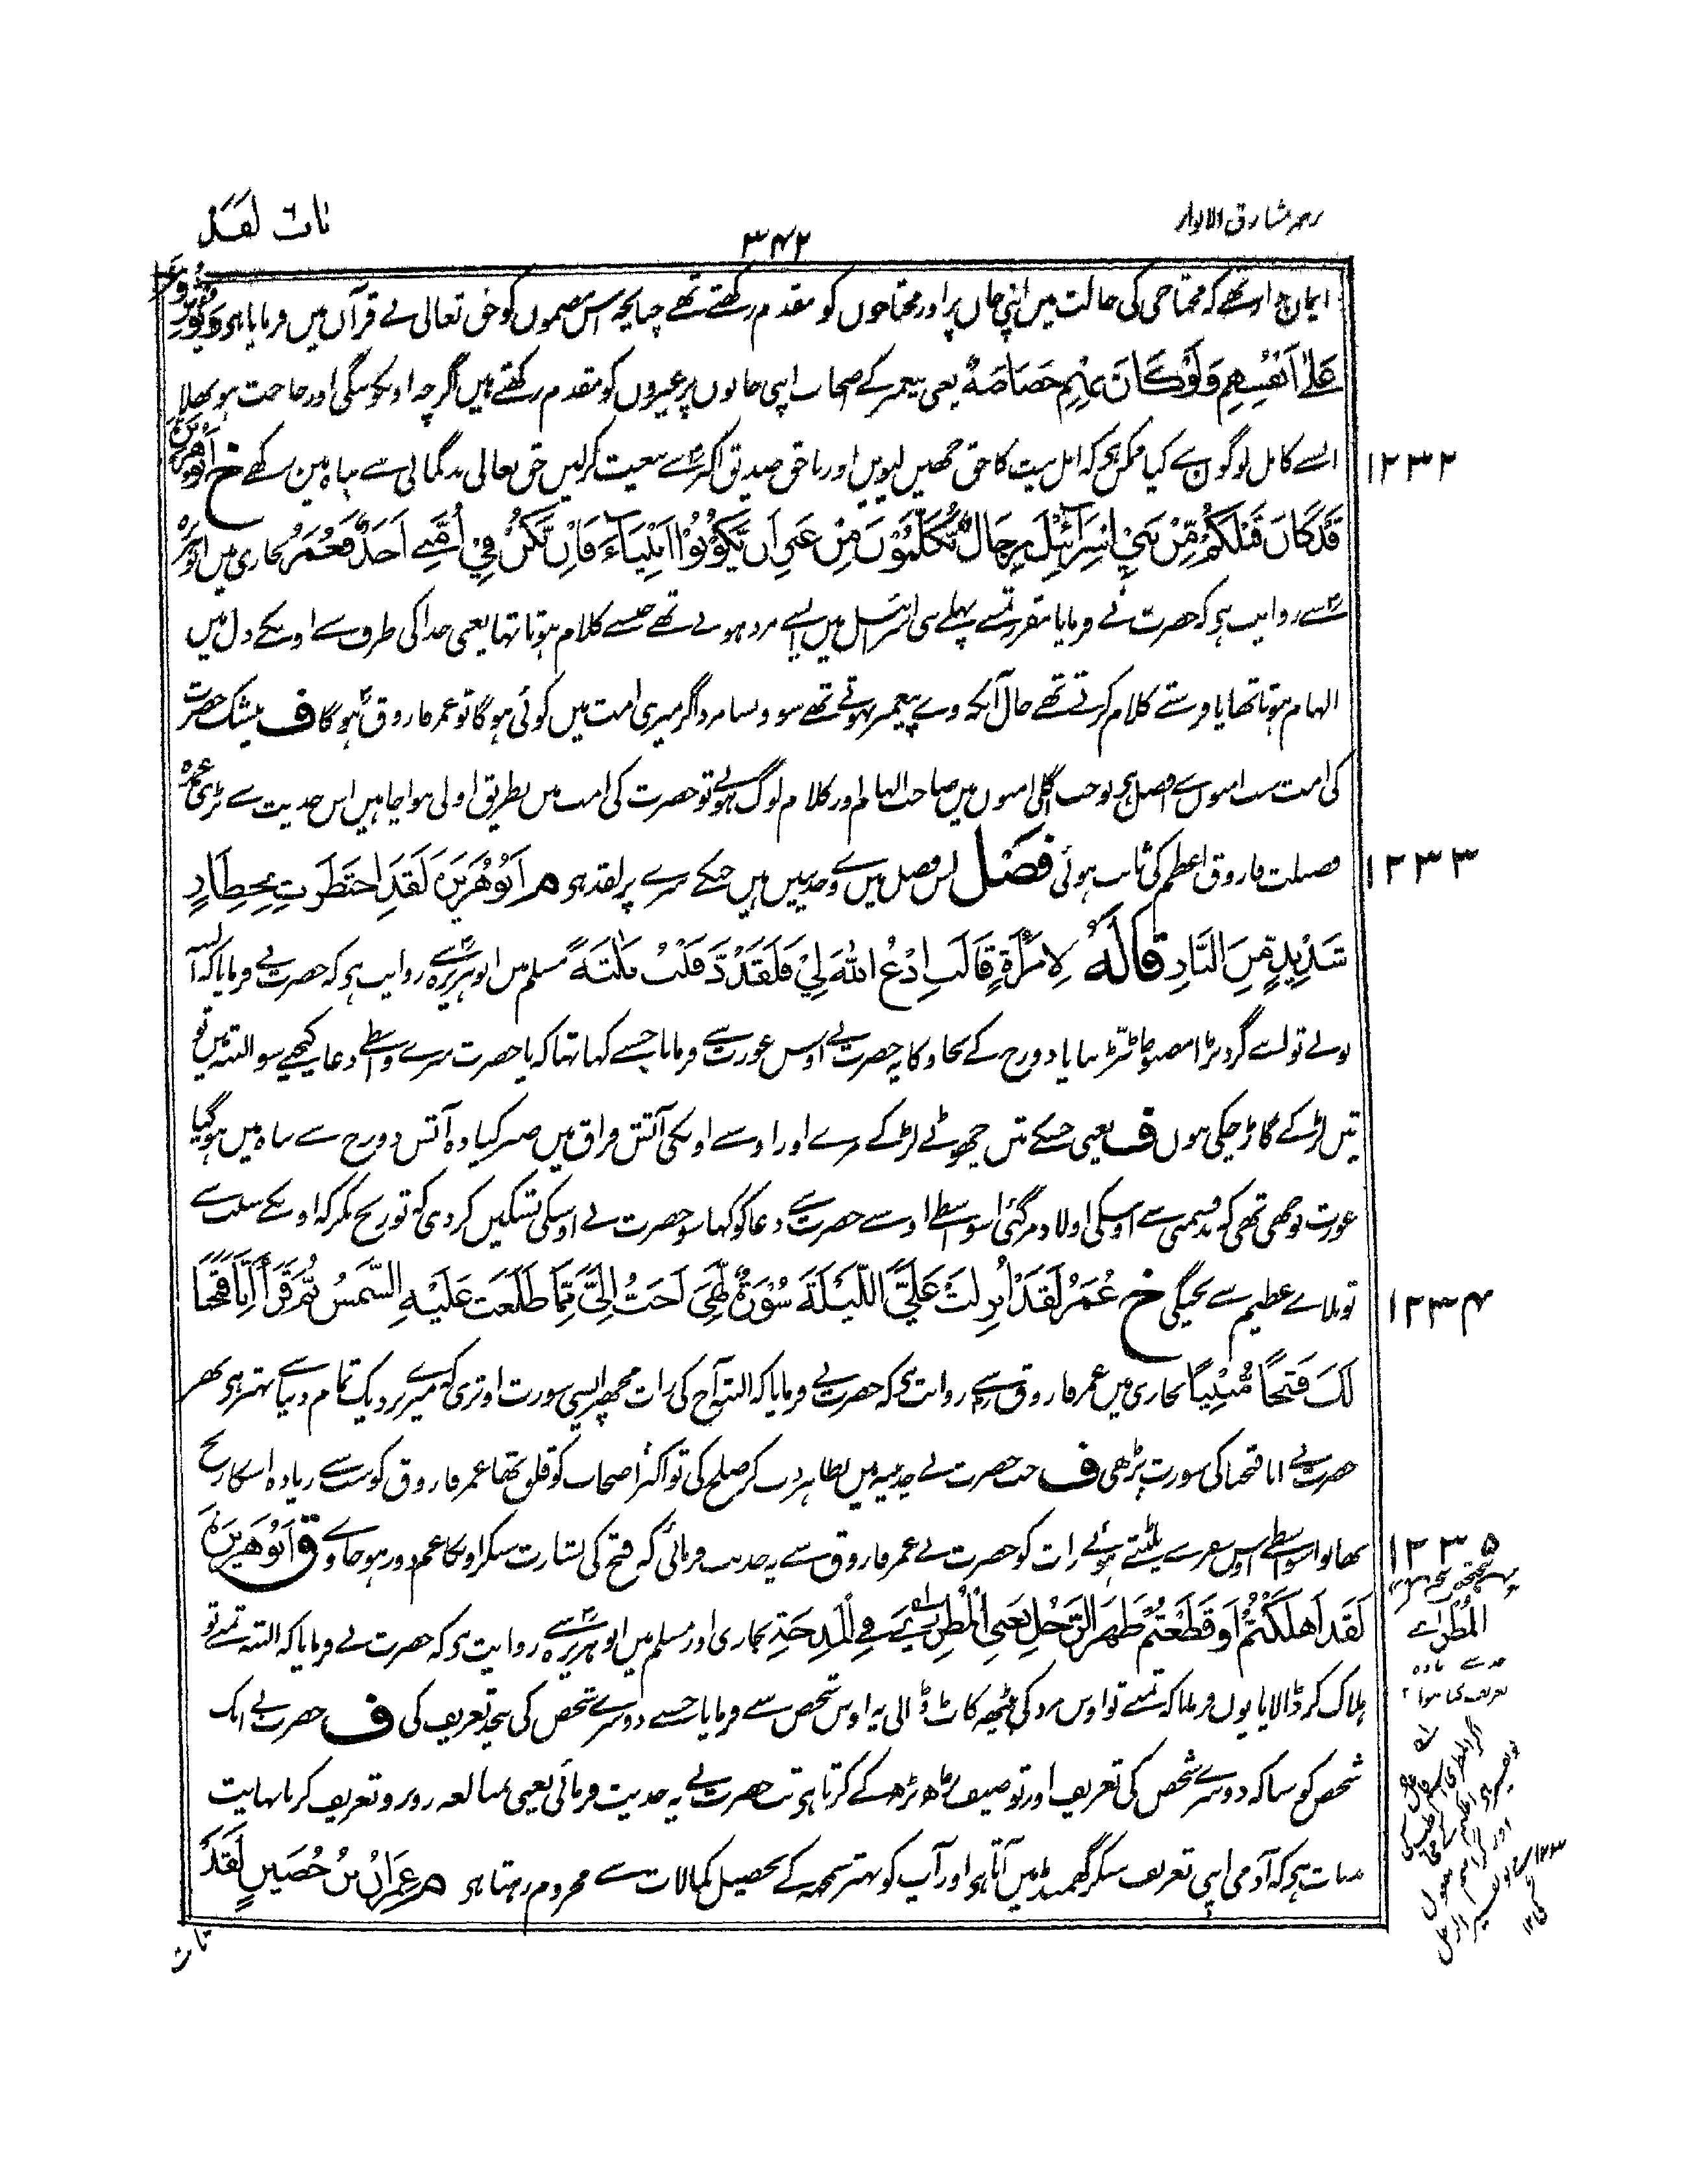 ترجمہ مشارق الانوار
۳۴۲
باب لقد
ایمان دار تھے کہ محتاجی کی حالت میں اپنی جان پر اور محتاجوں کو مقدم رکھتے تھے چنانچہ اس مضمون کو حق تعالی نے قرآن میں فرمایا ہی وَیُؤْثِرُوْنَ
عَلٰی اَنْفُسِهِمْ وَلَوْ كَانَ بِهِمْ خَصَاصَةٌ یعنی پیغمبر کے اصحاب اپنی جانوں پر غیروں کو مقدم رکھتے ہیں اگرچہ اونکو تنگی اور حاجت ہو بھلا
۱۲۳۲
ایسے کامل لوگوں سے کیا ممکن ہی کہ اہل بیت کا حق چھین لیویں اور ناحق صدیق اکبر سے بیعت کرلیں حق تعالی بدگمانی سے پناہ میں رکھے خ اَبُوْ هُرَیْرَةَ
قَدْ كَانَ قَبْلَكُمْ مِّنْ بَنِیْ اِسْرَآئِیْلَ رِجَالٌ یُّكَلَّمُوْنَ مِنْ غَیْرِ اَنْ یَّكُوْنُوْا اَنْبِیَآءَ فَاِنْ یَّكُنْ فِیْ اُمَّتِیْ اَحَدٌ فَعُمَرُ بخاری میں ابوہریرہ
سے روایت ہی کہ حضرت نے فرمایا مقرر تمسے پہلے بنی اسرائیل میں ایسے مرد ہوتے تھے جنسے کلام ہوتا تھا یعنی خدا کی طرف سے اونکے دل میں
الہام ہوتا تھا یا فرشتے کلام کرتے تھے حال آنکہ وے پیغمبر نہوتے تھے سو ویسا مرد اگر میری امت میں کوئی ہوگا تو عمر فاروق ہوگا ف بیشک حضرت
کی امت سب امتوں سے افضل ہی تو جب اگلی امتوں میں صاحب الہام اور کلام لوگ ہوئے تو حضرت کی امت میں بطریق اولی ہوا چاہیں اس حدیث سے بڑی
۱۲۳۳
فضیلت فاروق اعظم کی ثابت ہوئی فصل اس فصل میں وے حدیثیں ہیں جنکے سرے پر لقد ہی م اَبُوْ هُرَیْرَةَ لَقَدِ احْتَظَرْتِ بِحِظَارٍ
شَدِیْدٍ مِّنَ النَّارِ قَالَهُ لِامْرَأَةٍ قَالَتِ ادْعُ اللهَ لِیْ فَلَقَدْ دَفَنْتُ ثَلٰثَةً مسلم میں ابوہریرہ سے روایت ہی کہ حضرت نے فرمایا کہ البتہ
تونے تو اپنے گرد بڑا مضبوط بنایا دوزخ کے بچاو کا یہ حضرت نے اوس عورت سے فرمایا جسنے کہا تھا کہ یا حضرت میرے واسطے دعا کیجیے سو البتہ میں تو
تین لڑکے گاڑ چکی ہوں ف یعنی جسکے تین چھوٹے لڑکے مرے اور اوسنے اونکی آتش فراق میں صبر کیا وہ آتش دوزخ سے پناہ میں ہوگیا
عورت تو سمجھی تھی کہ بدقسمتی سے اوسکی اولاد مرگئی اسواسطے اوسنے حضرت سے دعا کو کہا سو حضرت نے اوسکی تسکین کردی کہ تو رنج مت کر کہ اونکے سبب سے
۱۲۳۴
تو بلاے عظیم سے بچیگی خ عُمَرُ لَقَدْ اُنْزِلَتْ عَلَیَّ اللَّیْلَةَ سُوْرَةٌ لَّهِیَ اَحَبُّ اِلَیَّ مِمَّا طَلَعَتْ عَلَیْهِ الشَّمْسُ ثُمَّ قَرَأَ اِنَّا فَتَحْنَا
لَكَ فَتْحًا مُّبِیْنًا بخاری میں عمر فاروق سے روایت ہی کہ حضرت نے فرمایا کہ البتہ آج کی رات مجھپر ایسی سورت اوتری کہ میرے نزدیک تمام دنیا سے بہتر ہی پھر
حضرت نے انا فتحنا کی سورت پڑھی ف جب حضرت نے حدیبیہ میں بظاہر دب کر صلح کی تو اکثر اصحاب کو قلق تھا عمر فاروق کو سب سے زیادہ اسکا رنج
۱۲۳۵
تھا تو اسواسطے اوس سفر سے پلٹتے ہوئے رات کو حضرت نے عمر فاروق سے یہ حدیث فرمائی کہ فتح کی بشارت سنکر اونکا غم دور ہو جاوے ق اَبُوْ هُرَیْرَةَ
لَقَدْ اَهْلَكْتُمْ اَوْ قَطَعْتُمْ ظَهْرَ الرَّجُلِ یَعْنِی الْمُطْرٰی فِی الْمِدْحَةِ بخاری اور مسلم میں ابوہریرہ سے روایت ہی کہ حضرت نے فرمایا کہ البتہ تمنے تو
ہلاک کر ڈالا یا یوں فرمایا کہ تمنے تو اوس مرد کی پیٹھ کاٹ ڈالی یہ اوس شخص سے فرمایا جسنے دوسرے شخص کی بیحد تعریف کی ف حضرت نے ایک
شخص کو سنا کہ دوسرے شخص کی تعریف اور توصیف بڑھ بڑھ کے کرتا ہی تب حضرت نے یہ حدیث فرمائی یعنی مبالغہ روبرو تعریف کرنا نہایت
بات ہی کہ آدمی اپنی تعریف سنکر گھمنڈ میں آتا ہی اور آپ کو بہتر سمجھ کے تحصیل کمالات سے محروم رہتا ہی م عِمْرَانُ بْنُ حُصَیْنٍ لَقَدْ
تابت
المُطرٰی
حد سے زیادہ
تعریف کیا ہوا